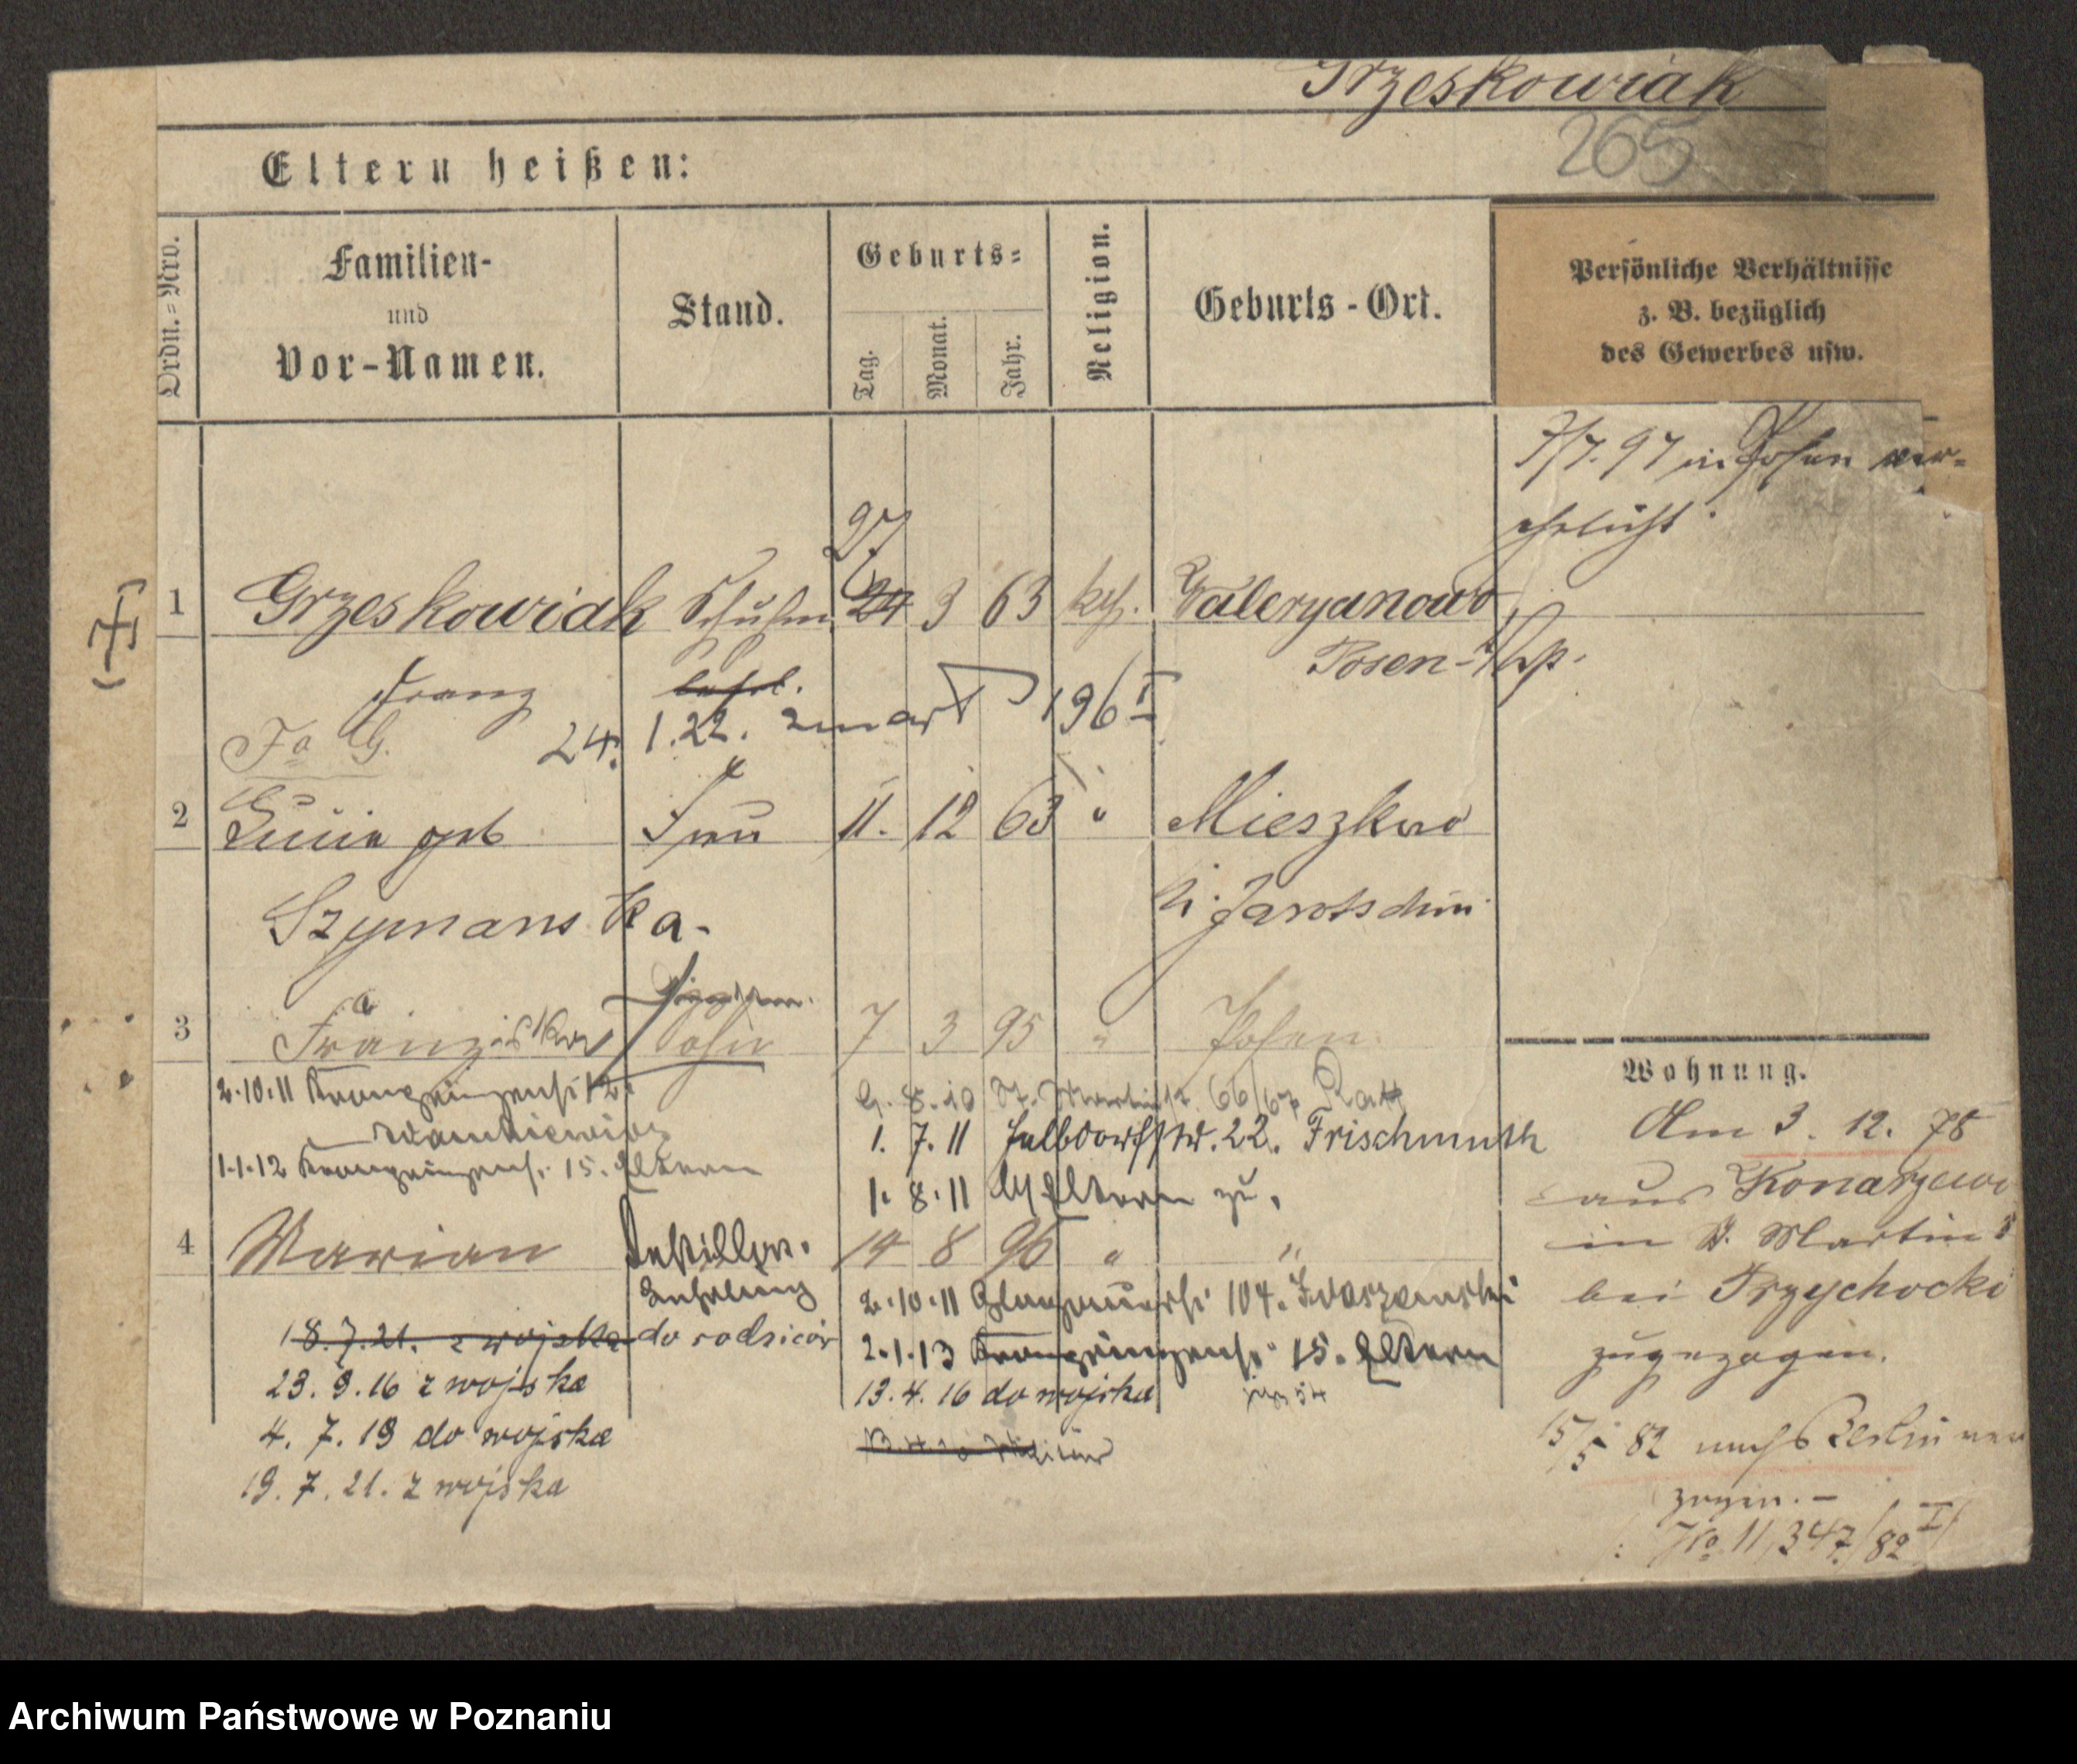 Grzeskowiak
265
Eltern heißen:
Ordn.=Nro.
Familien-
und
Vor-Namen.
Stand.
Geburts=
Tag.
Monat.
Jahr.
Religion.
Geburts-Ort.
Persönliche Verhältnisse
z. B. bezüglich
des Gewerbes usw.
7/7. 97 in Posen ver=
ehelicht.
27
1 Grzeskowiak Schuhm. 24 3 63 kth. Waleryanowo
Posen-
Franz
Fa G. 24. 1.22. zmarł 196 I
2 Lucia geb Frau 11. 12 63 " Mieszkow
Szymanska. Kr. Jarotschin
3 Franziskus Sohn 7 3 95 " Posen.
2.10.11 12.
G. 8.10 St. Martinstr. 66/67
1. 7. 11 Halbdorfstr. 22. Frischmuth
1.1.12 15. Eltern
1. 8. 11 Eltern zu.
4 Marian 14 8 96 " "
Lehrling
2.10.11 104.
18.7.21. z wojska do rodziców
2.1.13 15. Eltern
23. 9. 16 z wojska
13. 4. 16 do wojska
4. 7. 19 do wojska
19. 7. 21. z wojska
Wohnung.
Am 3. 12. 78
aus Konarzewo
in St. Martin
bei Przychocki
zugezogen.
15/5 82 nach Berlin ver
zogen. –
No 11,347/82 I
Archiwum Państwowe w Poznaniu